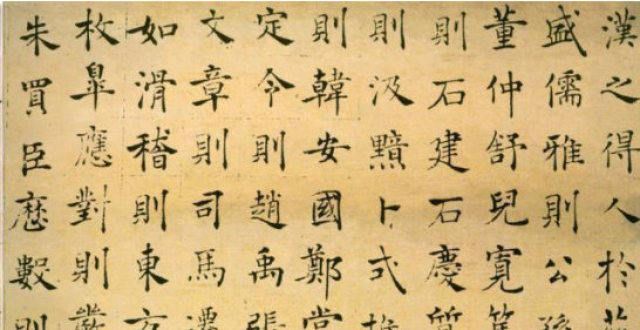 漢之得人於茲
盛儒雅則公孫
董仲舒兒寬篤
則石建石慶質
則汲黯卜式推
則韓安國鄭當
定令則趙禹張
文章則司馬遷
如滑稽則東方
枚皐應對則嚴
朱買臣歷數則